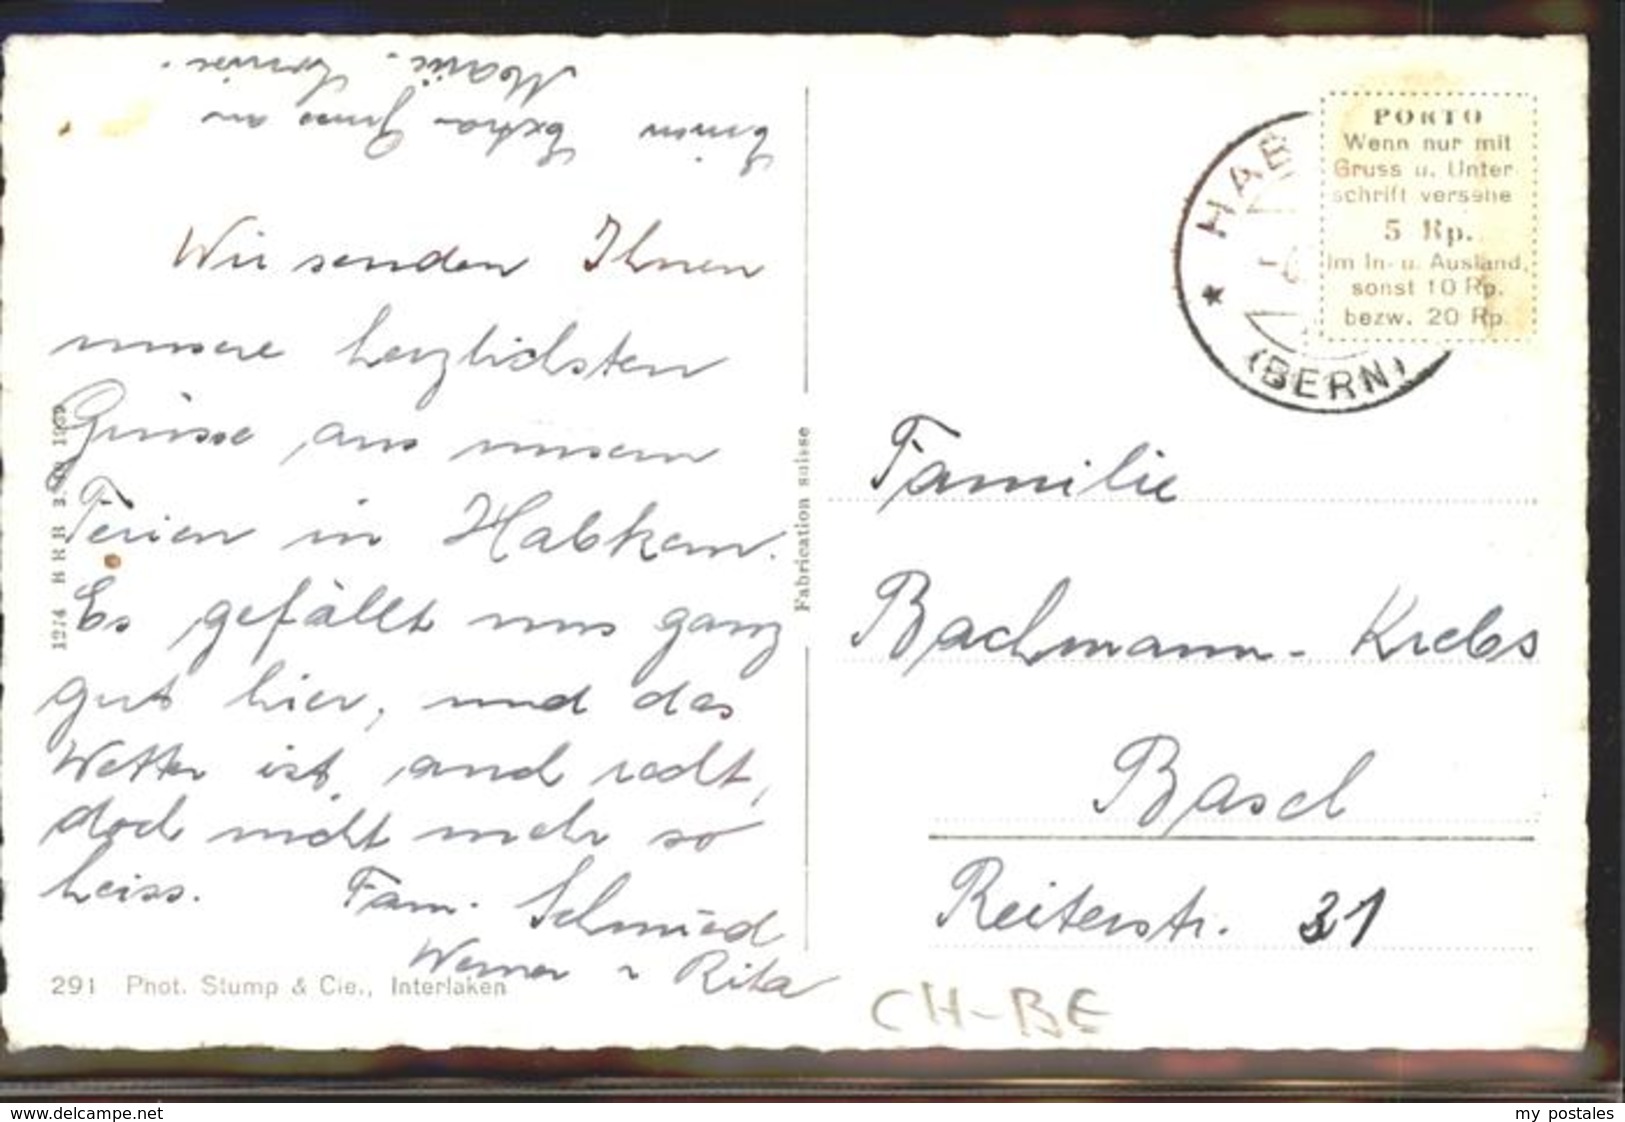 Einen Extra Gruss an
Marie, Louise.
Wir senden Ihnen
unsere herzlichsten
Grüsse aus unsern
Ferien in Habkern.
Es gefällt uns ganz
gut hier, und das
Wetter ist, auch recht,
doch nicht mehr so
heiss. Fam. Schmied
Werner u Rita
291 Phot. Stump & Cie., Interlaken
Fabrication suisse
HAB
(BERN)
PORTO
Wenn nur mit
Gruss u. Unter
schrift versehe
5 Rp.
Im In- u. Ausland,
sonst 10 Rp.
bezw. 20 Rp.
Familie
Bachmann-Krebs
Basel
Reiterstr. 31
CH-BE
www.delcampe.net
my postales